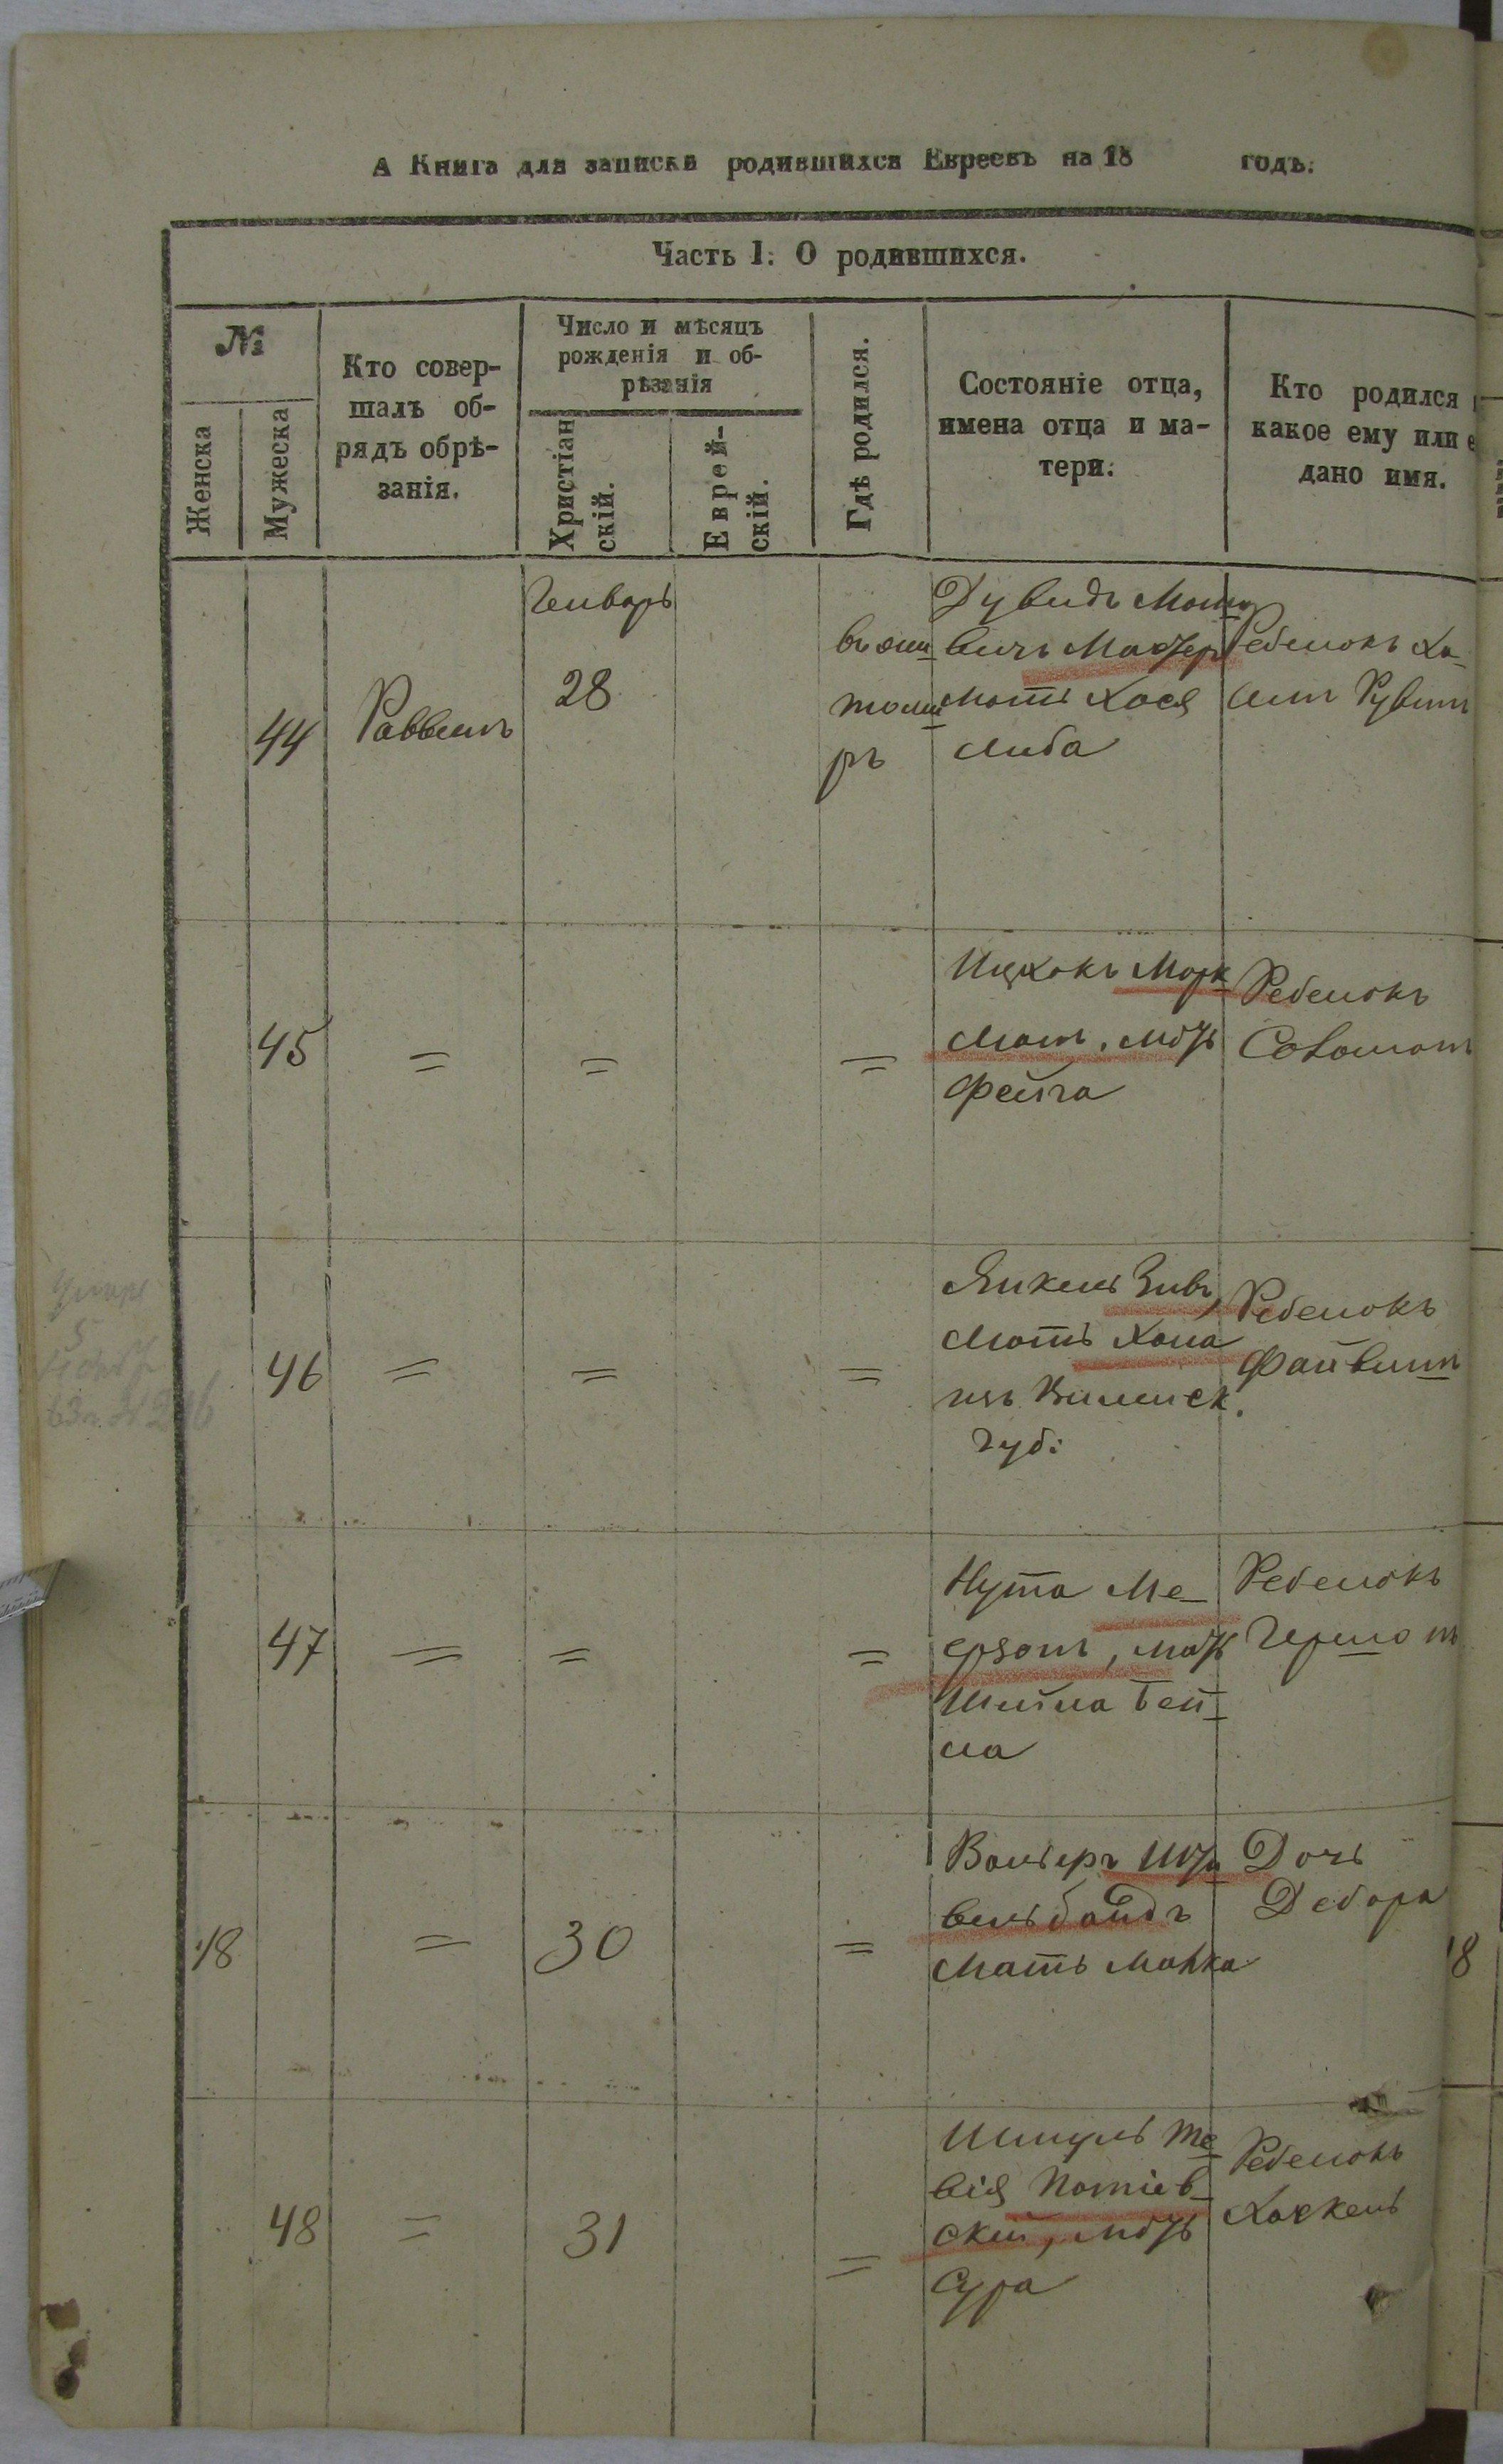 А Книга для записки родившихся Евреевъ на 18 годъ.
Часть I. О родившихся.
№
Женска
Мужеска
Кто совер-
шалъ об-
рядъ обрѣ-
занія.
Число и мѣсяцъ
рожденія и об-
рѣзанія
Христіан
скій.
Еврей-
скій.
Гдѣ родился.
Состояніе отца,
имена отца и ма-
тери.
Кто родился
какое ему или е
дано имя.
44
Раввинъ
Генварь
28
въ жи
томи
ръ
Дувидъ
вичъ Мастер
мать Хася
Либа
Ребенокъ Ха-
имъ Рувин
45
=
=
=
Ицхокъ Морк
матъ
Фейга
Ребенокъ
Соломонъ
46
=
=
=
Янкель Зивъ,
мать Хана
изъ Виленск.
губ:
Ребенокъ
Файвишъ
47
=
=
=
Нута Ме-
ерзонъ, мать
Шейна Бей-
ла
Ребенокъ
Гершонъ
18
=
30
=
Вольфъ
мать Манка
Дочь
Дебора
18
48
=
31
=
Шмуль Те
вія Потіев-
скій, мать
Сура
Ребенокъ
Хаскель